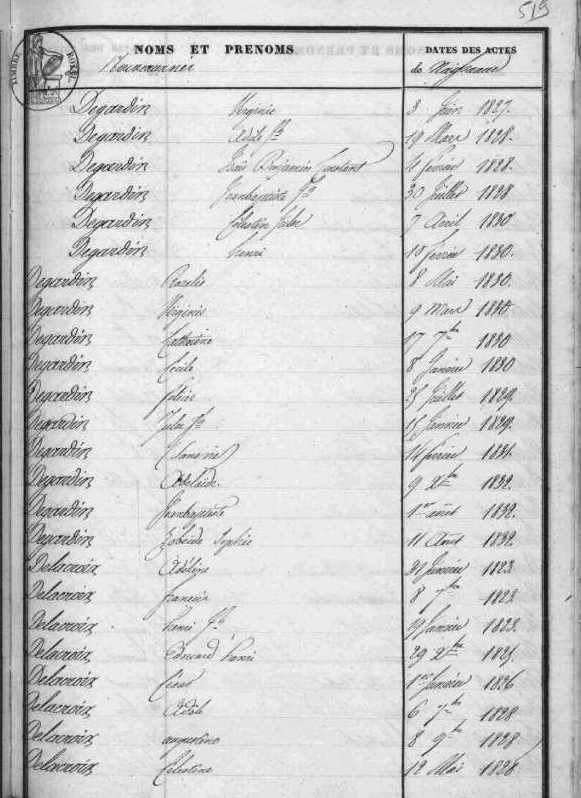 519
TIMBRE ROYAL
NOMS ET PRENOMS DATES DES ACTES
de Naissance
Degardin Virginie 3 Juin 1827.
Degardin Adèle 19 Mars 1828.
Degardin Benjamin Constant 4 février 1828.
Degardin Jeanbaptiste 30 Juillet 1828
Degardin Célestin Jules 7 Avril 1830
Degardin henri 10 février 1830.
Degardin Rosalie 8 Mai 1830.
Degardin Virginie 9 Mars 1830
Degardin Catherine 17 7bre 1830
Degardin Cécile 8 Janvier 1830
Degardin 25 Juillet 1829.
Degardin Jules 15 Janvier 1829.
Degardin février 1831.
Degardin Adelaide 9 1832.
Degardin Jeanbaptiste 1er août 1832.
Degardin Zobéide Sophie 11 Août 1832.
Delacroix Adeline 31 Janvier 1823.
Delacroix francois 8 7bre 1823
Delacroix henri Janvier 1823.
Delacroix Edouard henri 29
Delacroix César 1er Janvier 1826
Delacroix Adèle 6 7bre 1828
Delacroix augustine 8 9bre 1828
Delacroix Célestine 12 Mai 1828